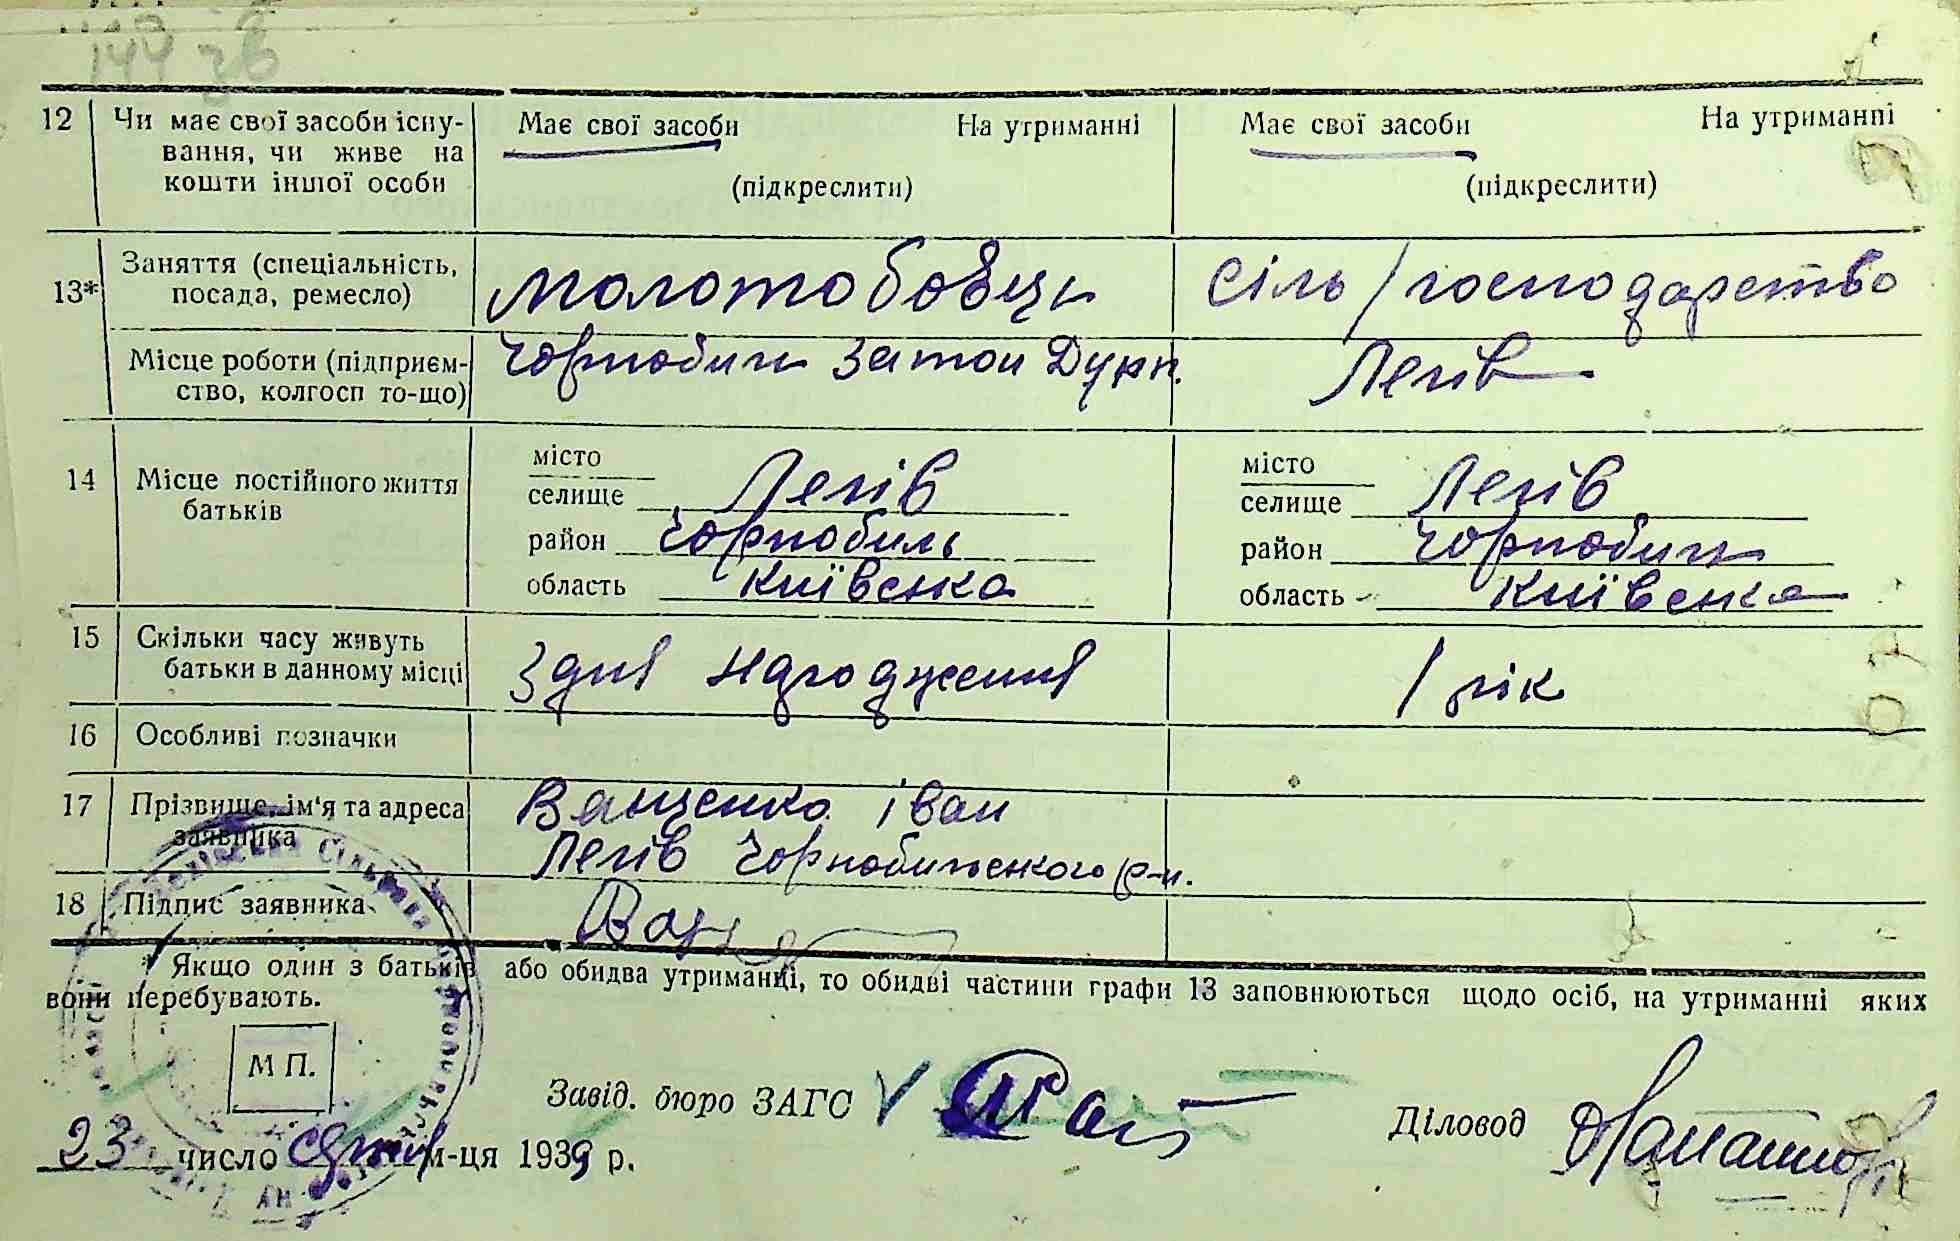 144 зв
12 Чи має свої засоби існу- Має свої засоби На утриманні Має свої засоби На утриманні
вання, чи живе на
кошти іншої особи (підкреслити) (підкреслити)
Заняття (спеціальність, молотобоєць сіль/господарство
13* посада, ремесло)
Місце роботи (підприєм- Чорнобиль Затон Лелів
ство, колгосп то-що)
місто місто
14 Місце постійного життя селище Лелів селище Лелів
батьків
район Чорнобиль район Чорнобиль
область Київська область Київська
15 Скільки часу живуть З дня народження 1 рік
батьки в данному місці
16 Особливі позначки
17 Прізвище, ім'я та адреса Ващенко Іван
заявника Лелів Чорнобильського р-н.
18 Підпис заявника
* Якщо один з батьків або обидва утриманці, то обидві частини графи 13 заповнюються щодо осіб, на утриманні яких
вони перебувають.
М П.
Завід. бюро ЗАГС Діловод
23 число м-ця 1939 р.